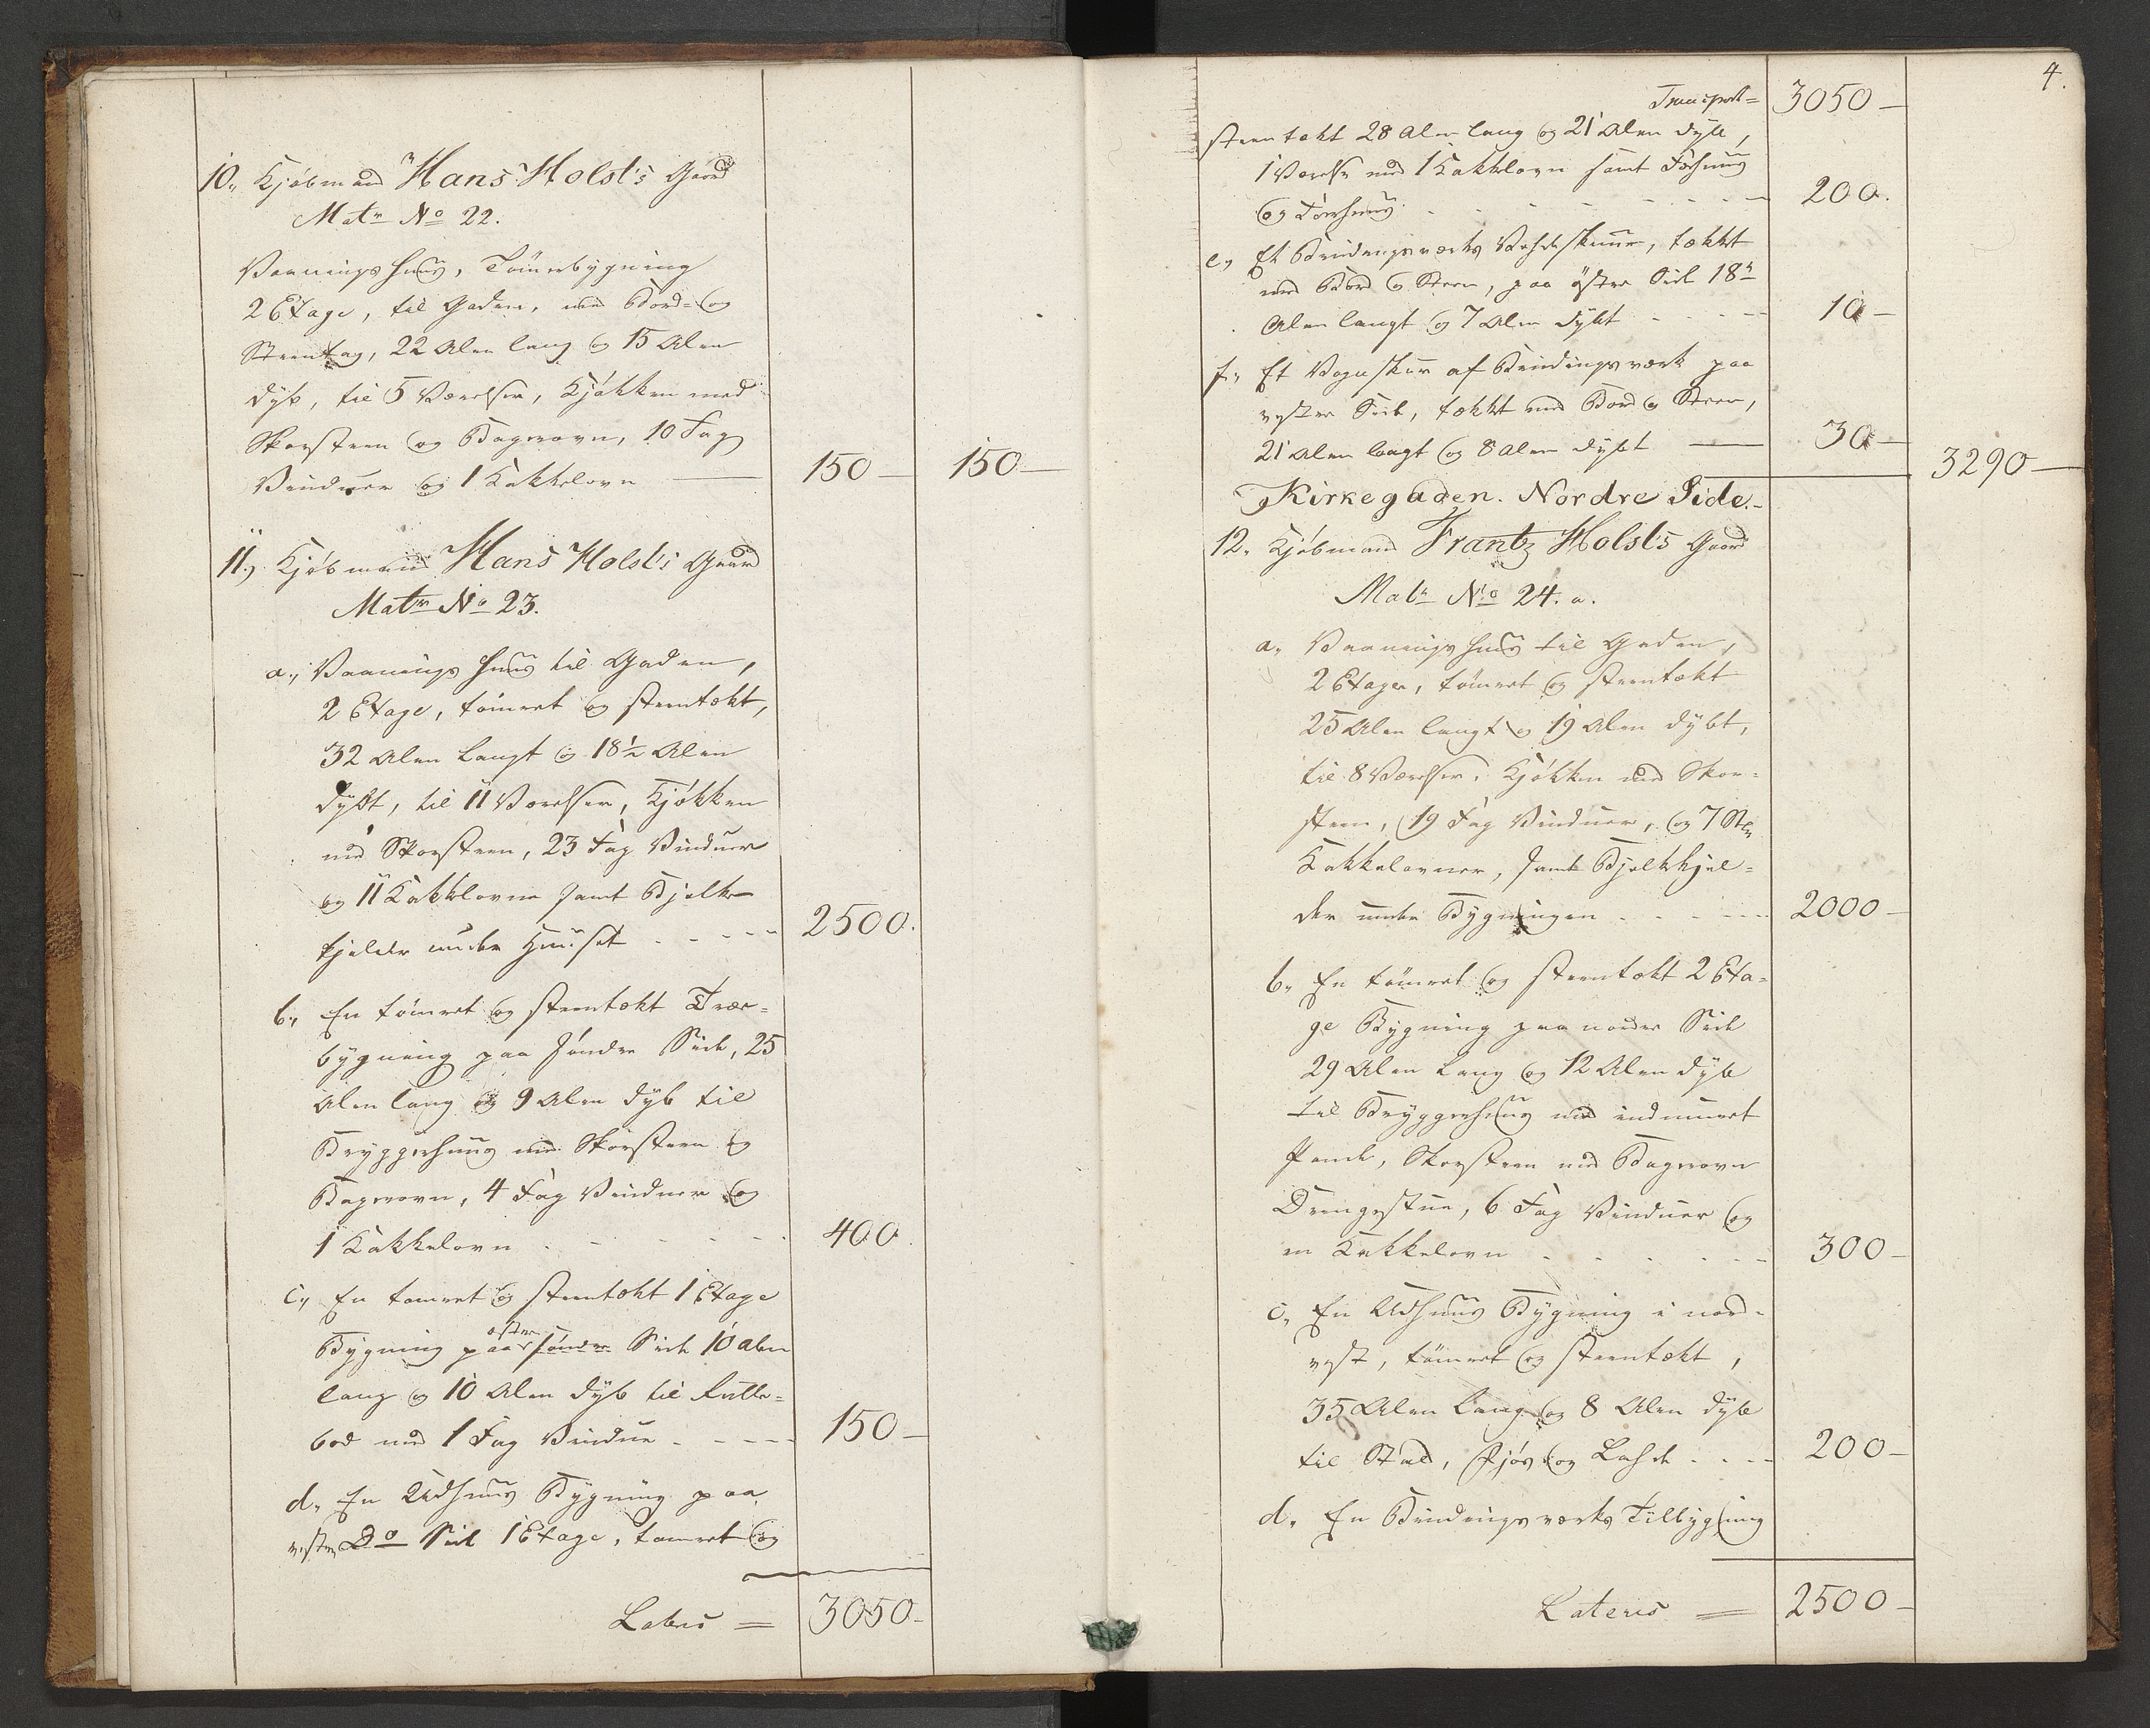 10., Kjøbmand Hans Holst's Gaard
Matr No 22.
Vaaningshuus, Tömmerbygning
2 Etage, til Gaden, med Bord- og
Steentag, 22 Alen lang og 15 Alen
dyb, til 5 Værelser, Kjøkken med
Skorsteen og Bagerovn, 10 Fag
Vinduer og 1 Kakkelovn — 150 — 150 —
11., Kjøbmand Hans Holst's Gaard
Matr No 23.
a., Vaaningshuus til Gaden,
2 Etage, tömret og steentækt,
32 Alen langt og 18½ Alen
dybt, til 11 Værelser, Kjøkken
med Skorsteen, 23 Fag Vinduer
og 11 Kakkelovne samt Bjelke
kjelder under Huuset - - - - 2500.
b., En tömret og steentækt Træe-
bygning paa søndre Side, 25
Alen lang og 9 Alen dyb til
Bryggerhuus med Skorsteen og
Bagerovn, 4 Fag Vinduer og
1 Kakkelovn - - - - - 400.
c., En tømret og steentækt 1 Etage
Bygning paa østre søndre Side 10 Alen
lang og 10 Alen dyb til Rulle-
bod med 1 Fag Vindue - - - - 150 —
d., En Udhuus Bygning paa
vestre Do Side 1 Etage, tømret og
Lateris = 3050 -
4.
Transport = 3050 —
steentækt 28 Alen lang og 21 Alen dyb,
1 Værelse med 1 Kakkelovn samt Fæhuus
og Tørhuus - - - - - 200.
e., Et Bindingsværks Vedskuur, tækket
med Bord og Steen, paa østre Side 18½
Alen langt og 7 Alen dybt - - - - 10 —
f., Et Vognskur af Bindingsværk paa
vestre Side, tækket med Bord og Steen,
21 Alen langt og 8 Alen dybt — 30 — 3290 —
Kirkegaden. Nordre Side.
12., Kjøbmand Frantz Holst's Gaard
Matr No 24. a.
a., Vaaningshuus til Gaden,
2 Etager, tömret og steentækt
25 Alen langt og 19 Alen dybt,
til 8 Værelser, Kjøkken med Skor-
steen, 19 Fag Vinduer, og 7 Stk
Kakkelovner, samt Bjelkekjel-
der under Bygningen - - - - 2000 —
b., En tömret og steentækt 2 Eta-
ge Bygning paa nordre Side
29 Alen lang og 12 Alen dyb
til Bryggerhuus med indmuret
Pande, Skorsteen med Bagerovn
Drengestue, 6 Fag Vinduer og
en Kakkelovn - - - - - 300 —
c., En Udhuus Bygning i nord-
vest, tömret og steentækt,
35 Alen lang og 8 Alen dyb
til Stald, Fjøs og Ladde - - - 200 —
d., En Bindingsværks Tilbygning
Lateris = 2500 —